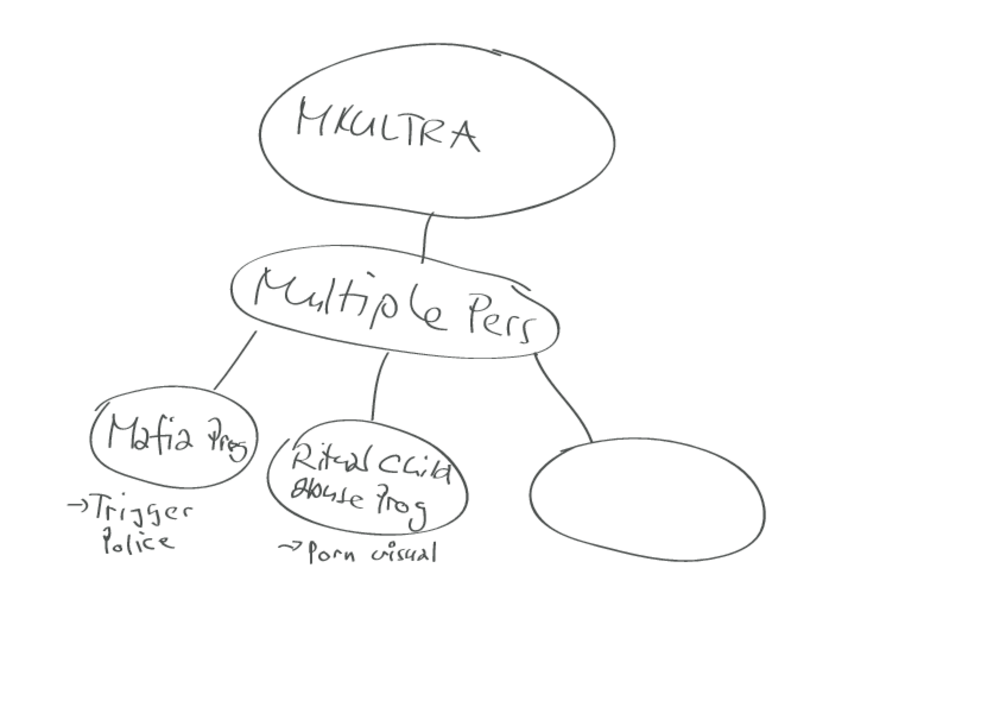 MKULTRA
Multiple Pers
Mafia Prog
→Trigger
Police
Ritual Child
abuse Prog
→Porn visual